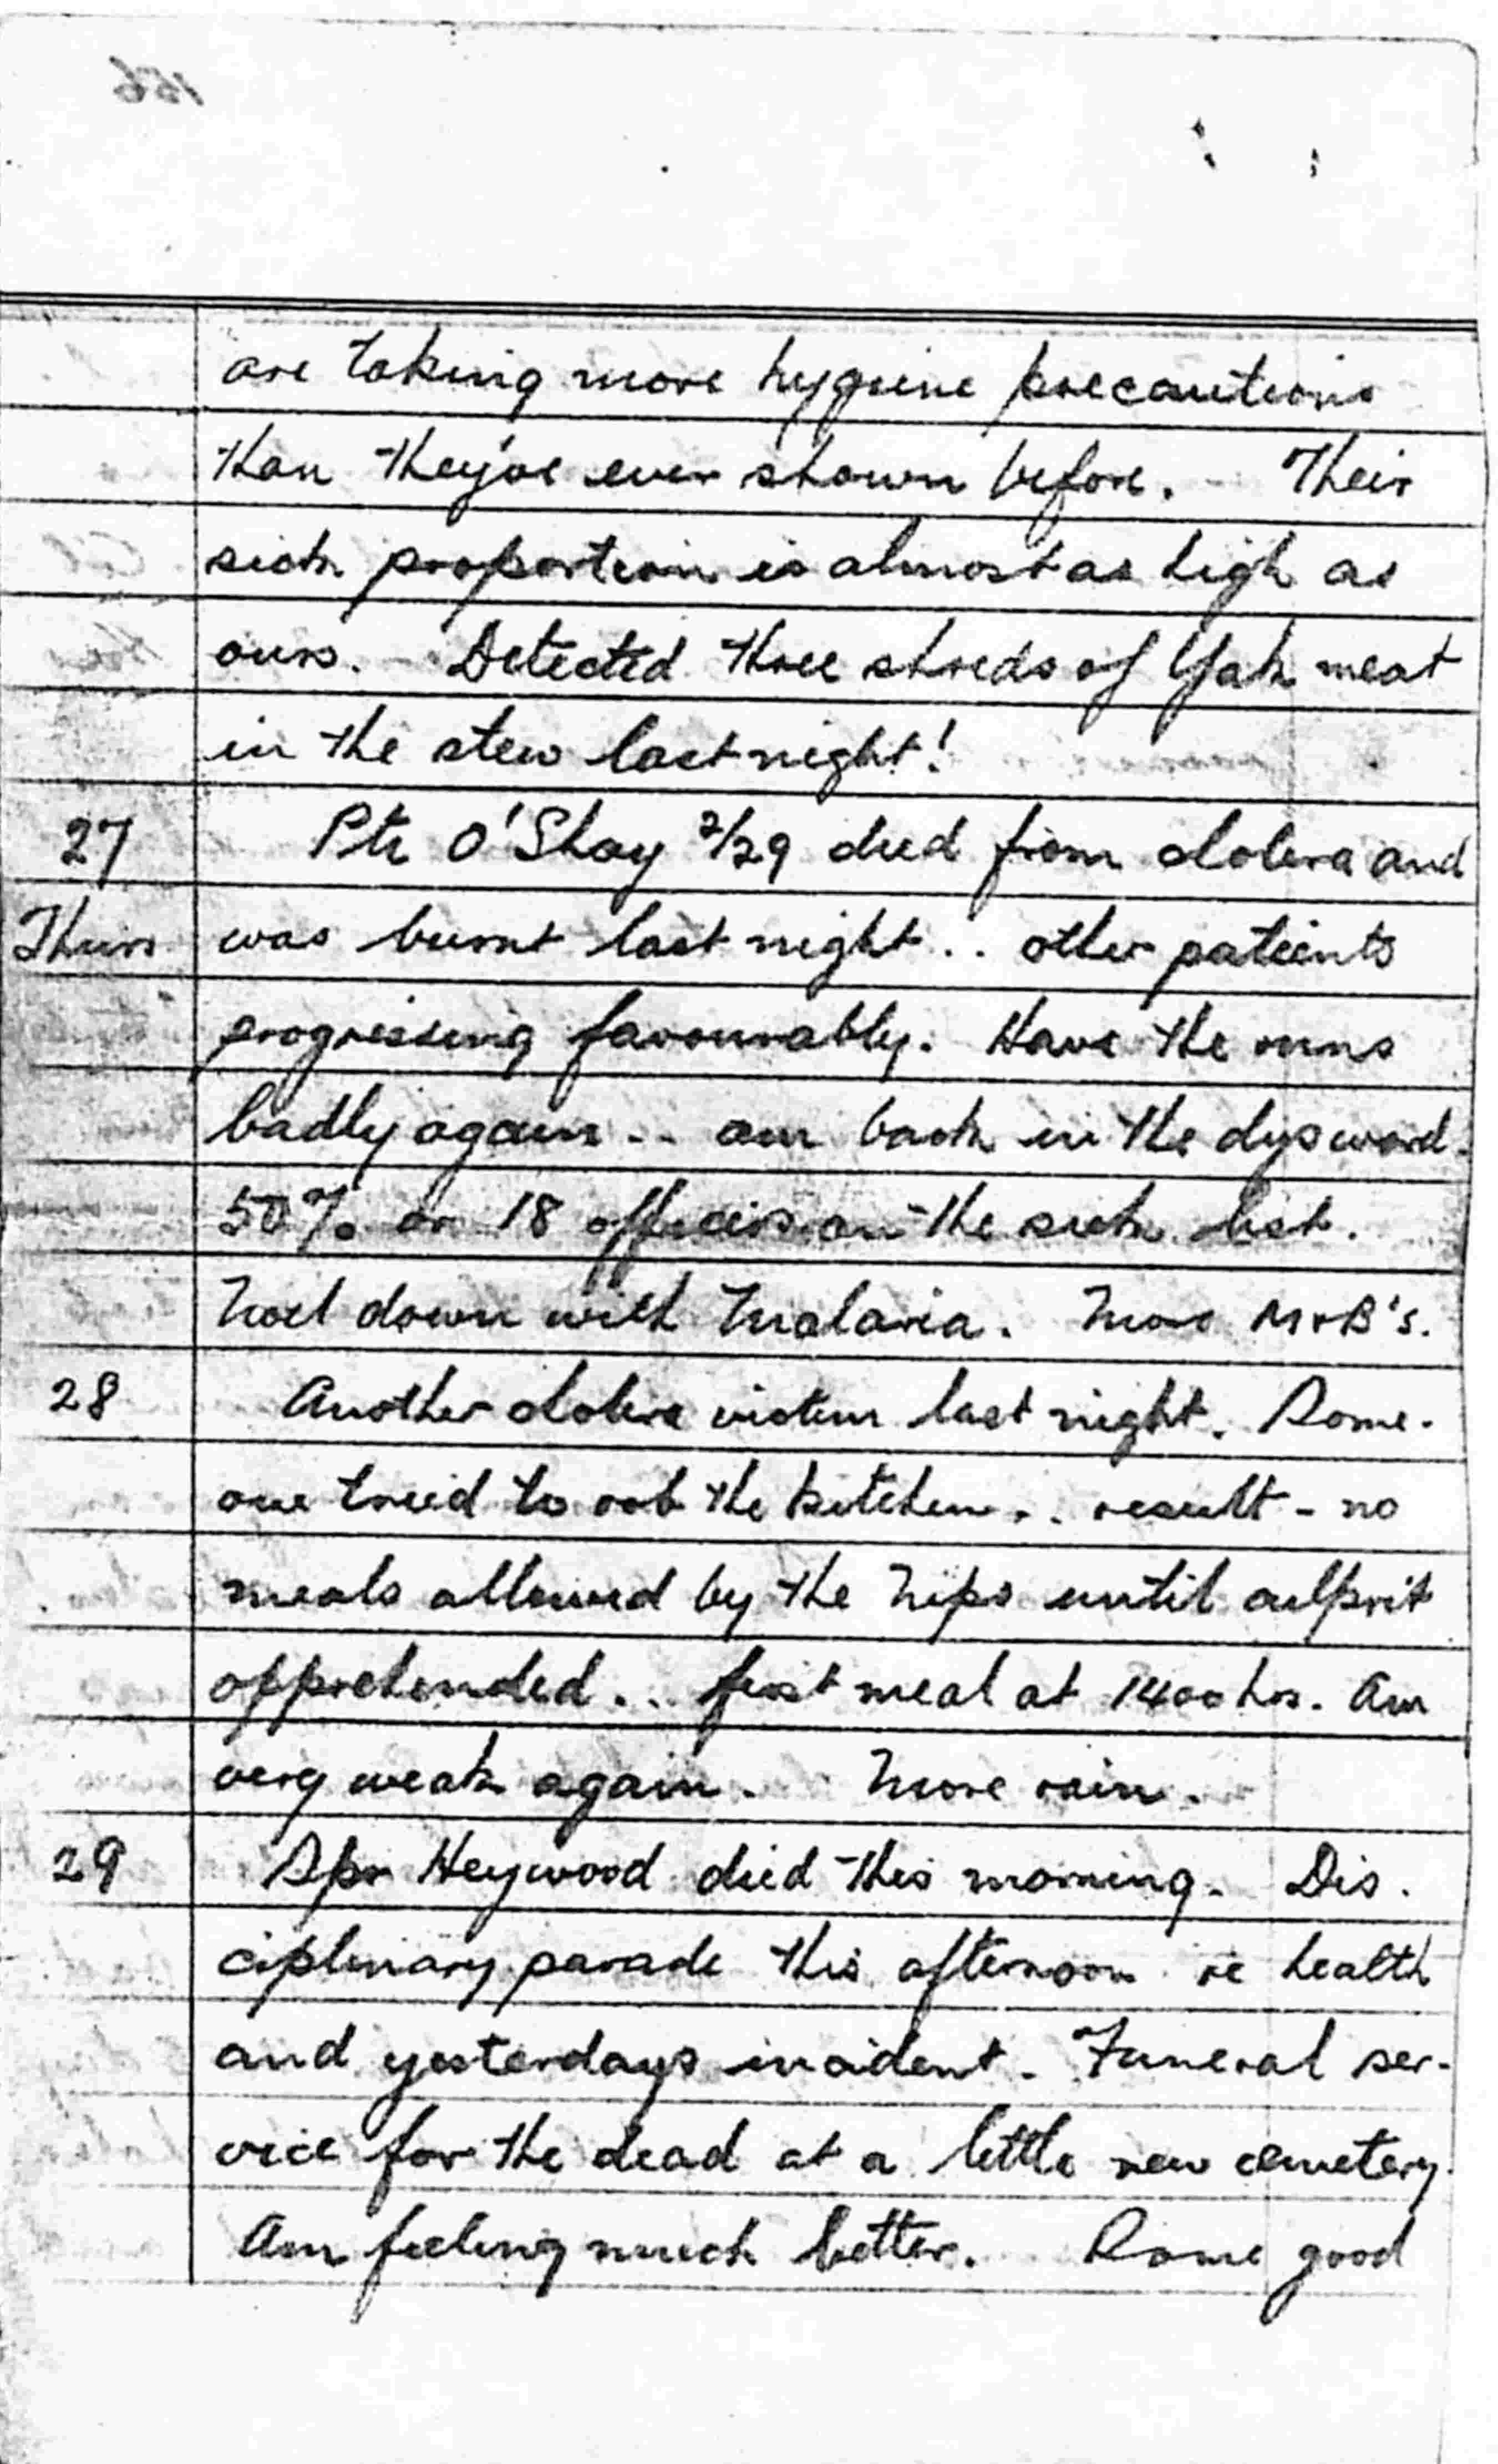 are taking more hygiene precautions
than they've ever shown before. - Their
sick proportion is almost as high as
ours. - Detected three shreds of Yak meat
in the stew last night!
27 Pte O'Shay 2/29 died from cholera and
Thurs was burnt last night .. other patients
progressing favourably. Have the runs
badly again -- am back in the dys ward.
50% or 18 officers on the sick list.
Noel down with Malaria. More M+B's.
28 Another cholera victim last night. Some-
one tried to rob the kitchen .. result - no
meals allowed by the Nips until culprit
apprehended ... first meal at 1400 hrs. Am
very weak again. More rain.
29 Spr Heywood died this morning. Dis-
ciplinary parade this afternoon re health
and yesterdays incident. Funeral ser-
vice for the dead at a little new cemetery.
Am feeling much better. Some good